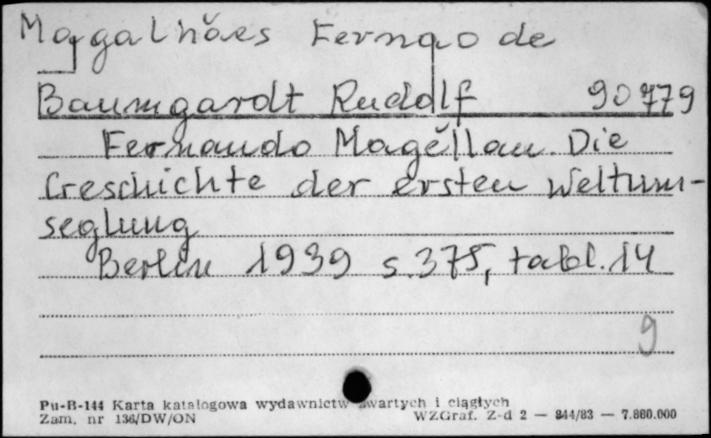 Magalhães Fernao de
Baumgardt Rudolf 90779
Fernando Magellan. Die
Geschichte der ersten Weltum-
seglung
Berlin 1939 s. 375, tabl. 14
9
Pu-B-144 Karta katalogowa wydawnictw zwartych i ciągłych
Zam. nr 136/DW/ON WZGraf. Z-d 2 — 844/83 — 7.860.000